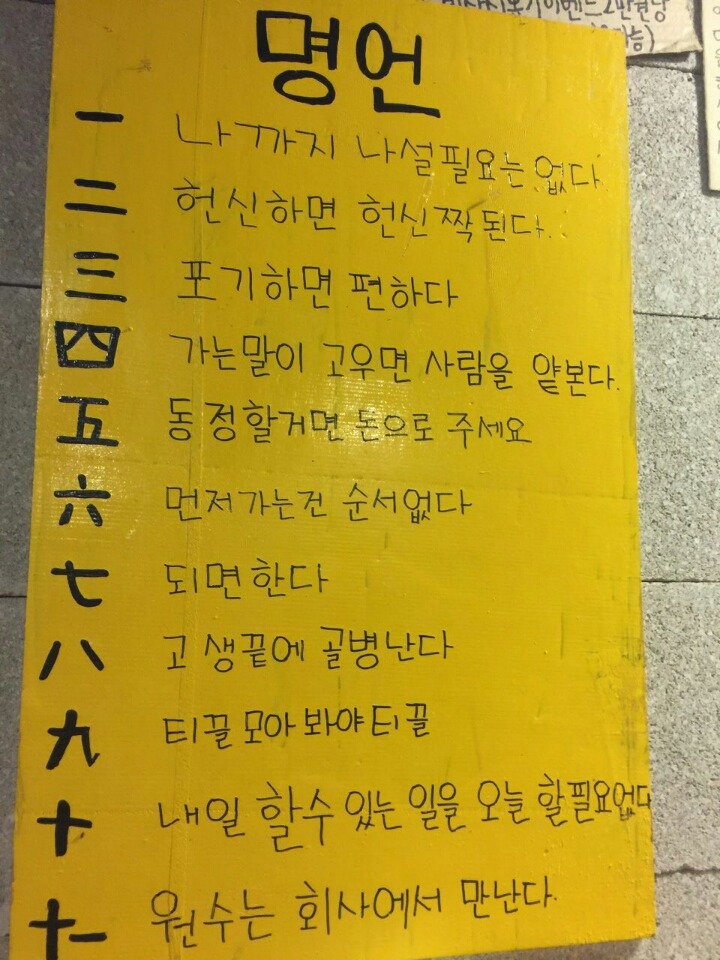 명언
一 나까지 나설필요는 없다
二 헌신하면 헌신짝된다.
三 포기하면 편하다
四 가는말이 고우면 사람을 얕본다.
五 동정할거면 돈으로 주세요
六 먼저가는건 순서없다
七 되면한다
八 고생끝에 골병난다
九 티끌모아봐야티끌
十 내일 할수있는 일을 오늘 할필요없다
十一 원수는 회사에서 만난다.